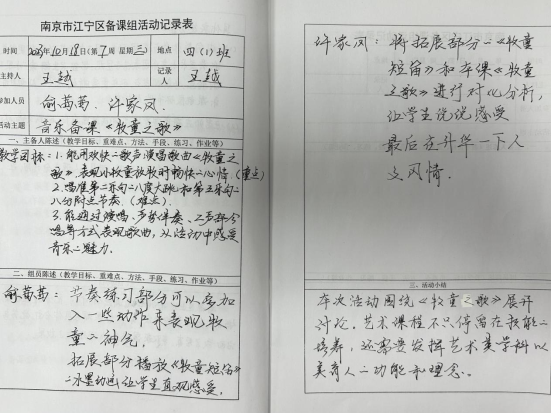 南京市江宁区备课组活动记录表
时间 2023年10月18日(第7周 星期三) 地点 四(1)班
主持人 王越 记录人 王越
参加人员 俞茜茜、许家凤
活动主题 音乐备课《牧童之歌》
一、主备人陈述(教学目标、重难点、方法、手段、练习、作业等)
教学目标:1.能用欢快的歌声演唱歌曲《牧童之
歌》,表现小牧童放牧时愉快的心情。(重点)
2.唱准第二乐句的八度大跳和第三乐句的
八分附点节奏。(难点)
3.能通过演唱、声势伴奏、二声部合
唱等方式表现歌曲,从活动中感受
音乐的魅力。
二、组员陈述(教学目标、重难点、方法、手段、练习、作业等)
俞茜茜:节奏练习部分可以多加
入一些动作来表现牧
童的神气,
拓展部分播放《牧童短笛》
的水墨动画让学生直观感受。
许家凤:将拓展部分的《牧童
短笛》和本课《牧童
之歌》进行对比分析,
让学生说说感受
最后在升华一下人
文风情.
三、活动小结
本次活动围绕《牧童之歌》展开
讨论。艺术课程不只停留在技能的
培养,还需要发挥艺术类学科以
美育人的功能和理念。